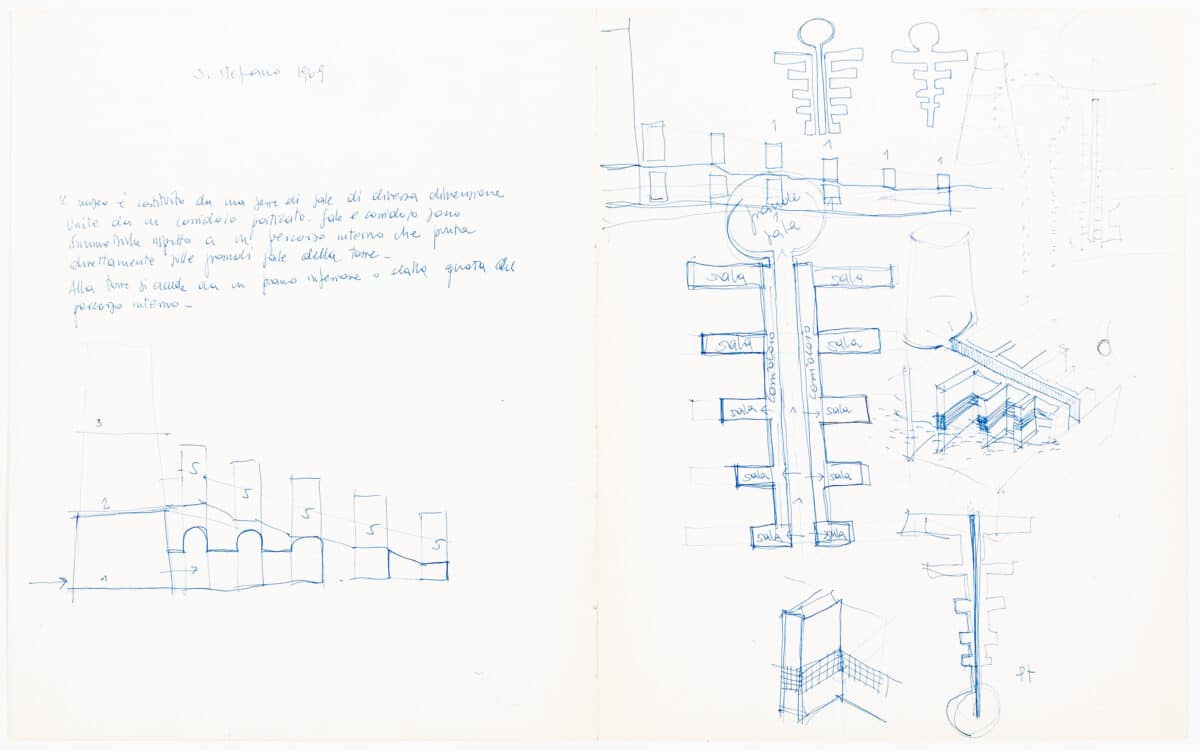 S. Stefano 1969
Il museo è costituito da una serie di sale di diversa dimensione
unite da un corridoio porticato. Sale e corridoio sono
simmetriche rispetto a un percorso interno che punta
direttamente sulle grandi sale della torre_
Alla torre si accede da un piano inferiore o dalla quota del
percorso interno_
3
S
2
S
S
S
S
1
1
1
1
1
grandi
sala
sala
sala
sala
sala
corridoio
corridoio
sala
sala
sala
sala
sala
sala
pt